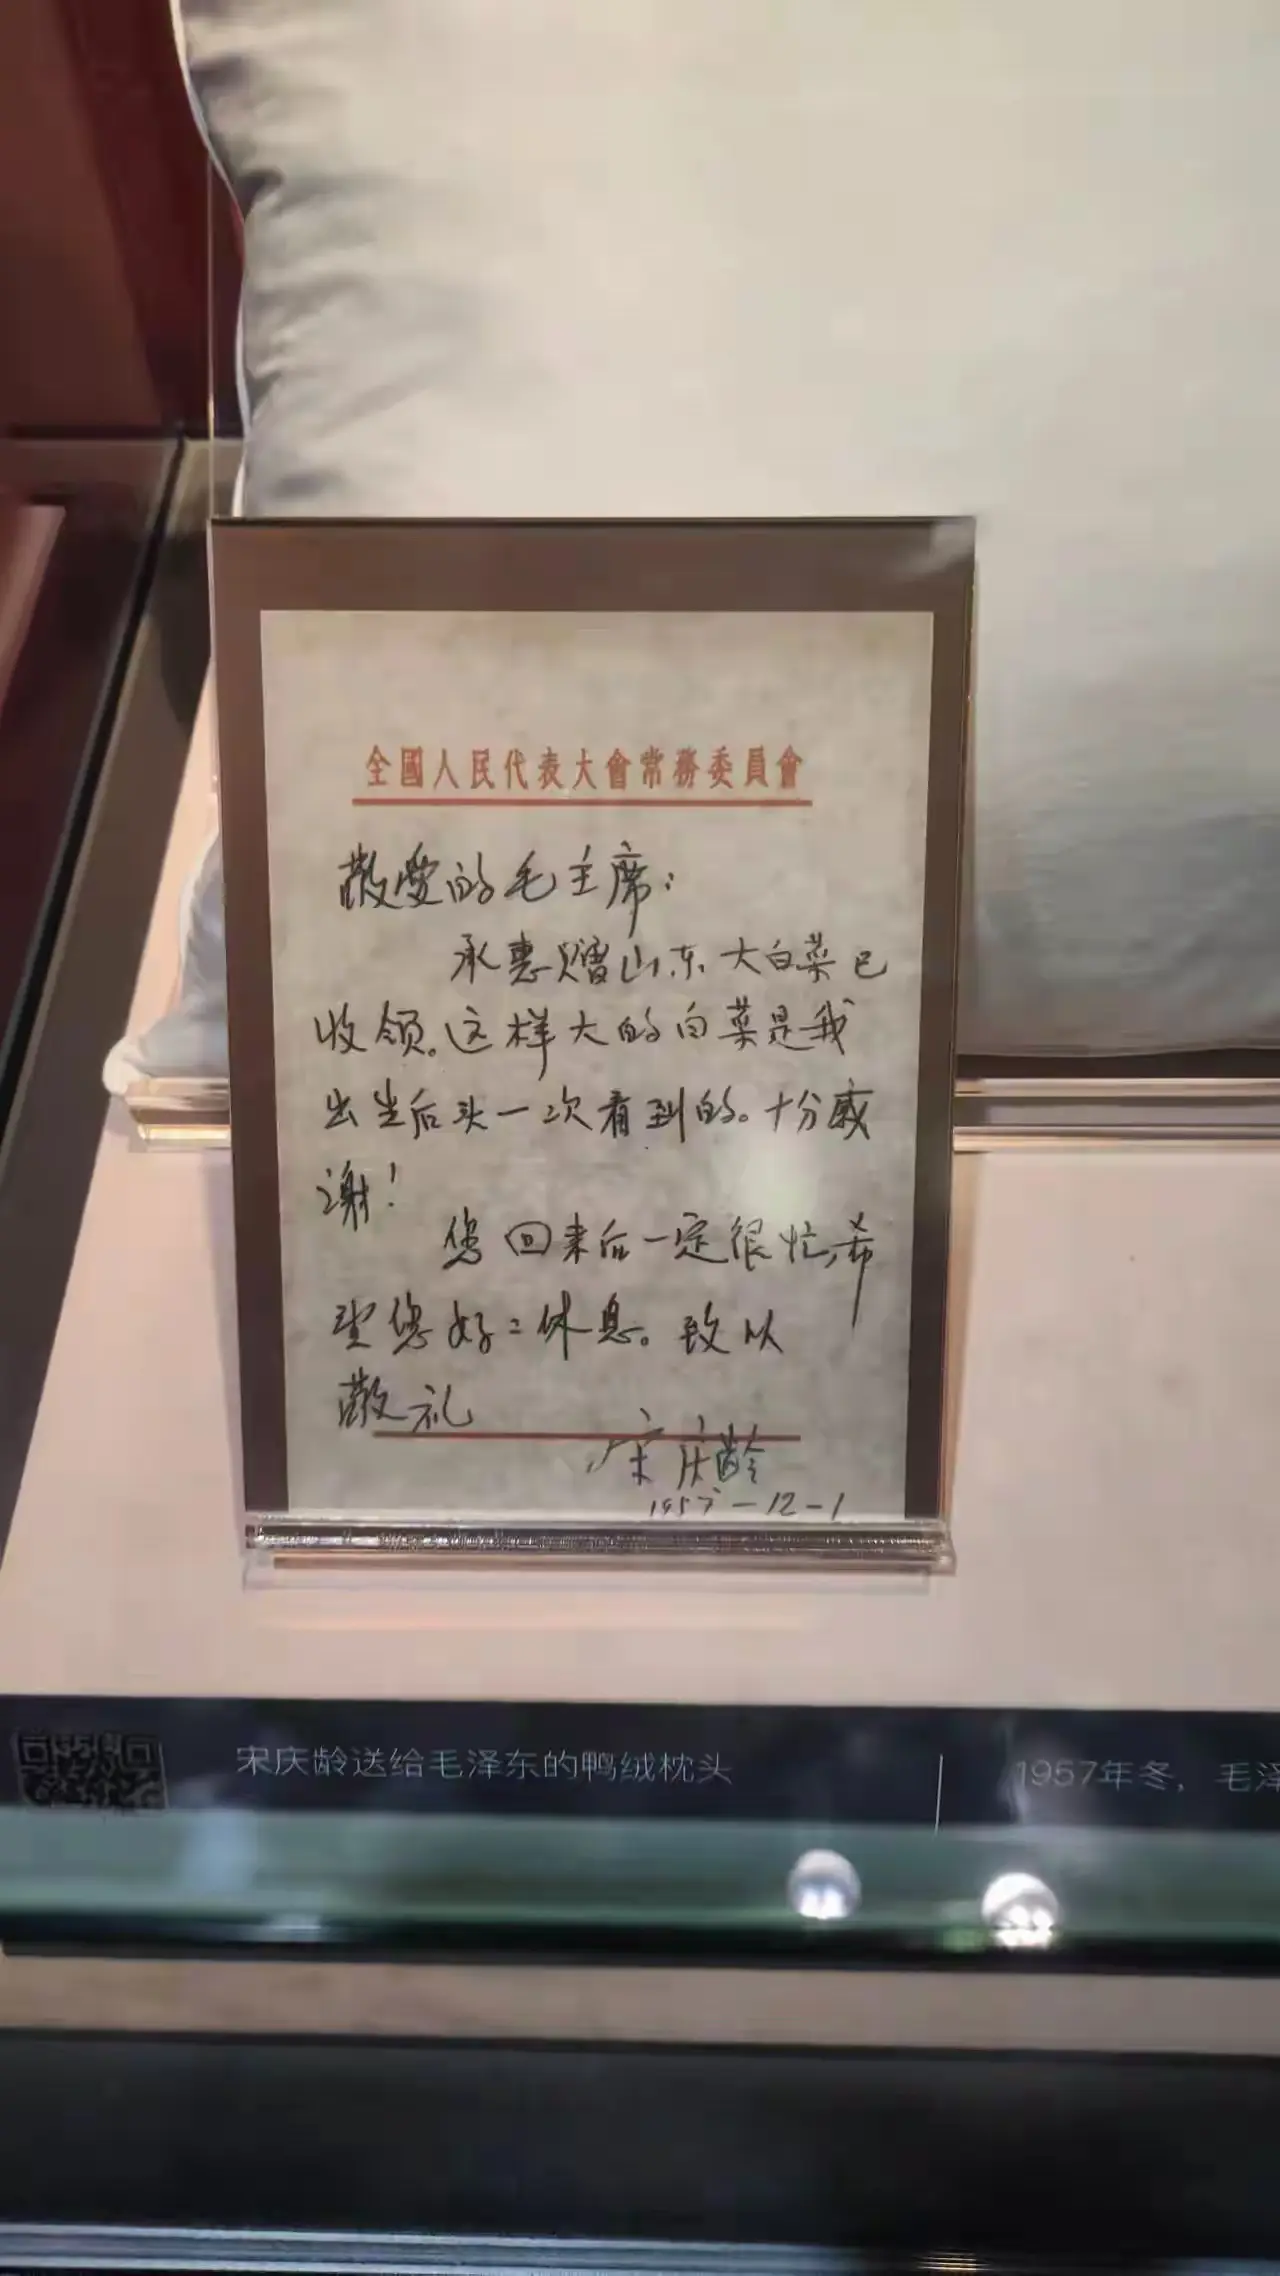 全國人民代表大會常務委員會
敬爱的毛主席：
承惠赠山东大白菜已
收领。这样大的白菜是我
出生后头一次看到的。十分感
谢！
您回来后一定很忙，希
望您好二休息。致以
敬礼
宋庆龄
1957-12-1
宋庆龄送给毛泽东的鸭绒枕头
1957年冬，毛泽